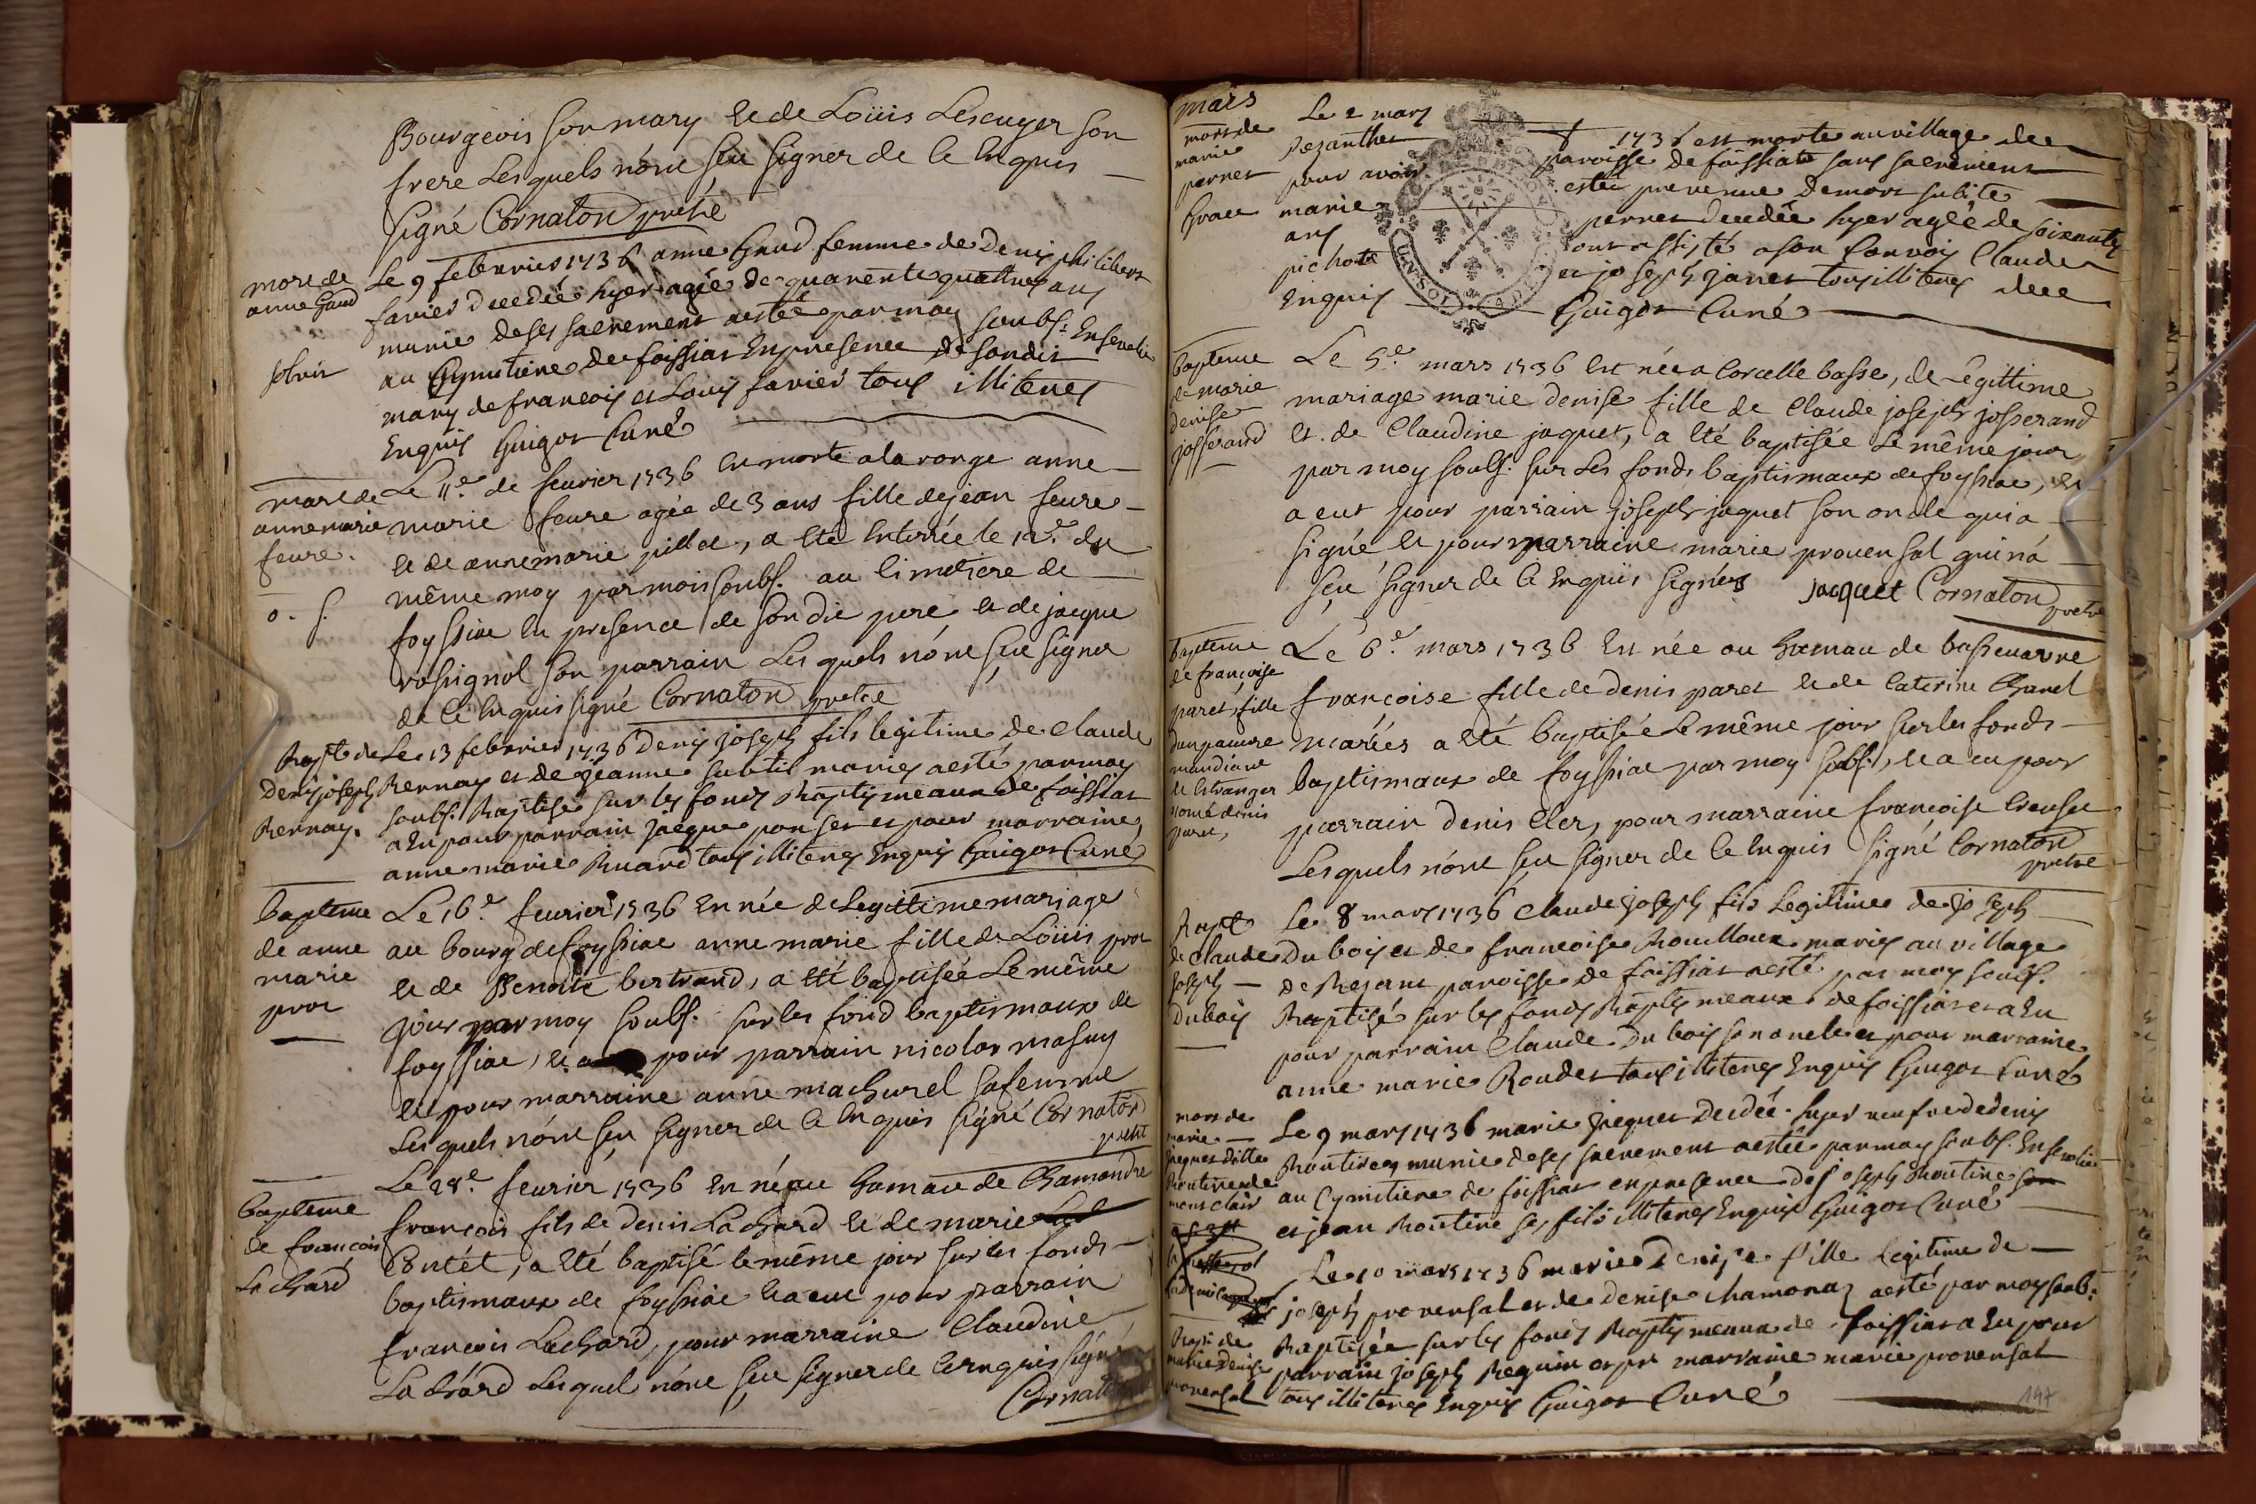 Bourgeois son mary et de Loüis Lescuyer son
frere Lesquels nónt sçu signer de ce enquis
signé Cornaton pretre
mort de
anne Gaud
Le 9 febvrier 1736 anne Gaud femme de Denis philibert
favier decedée hyer agée de quarente quattre ans
munie de ses sacrement a esté par moy soubs. Ensevelie
au Cymitiere de foissiat En presence de son dit
mary de francois et Louis favier tous illiteres
Enquis Guigot Curé
mort de
anne marie
feure.
o. s.
Le 11e. de feurier 1736 est morte a la ronge anne
marie feure agée de 3 ans fille de jean feure
et de anne marie pillet, a été enterrée le 12e. du
même moy par moi soubs. au cimetiere de
foyssiac en presence de son dit pere et de jacque
rossignol son parrain Lesquels nónt sçu signer
de ce enquis signé Cornaton pretre
Bapt de
Denis joseph
Rernay.
Le 13 febvrier 1736 Denis joseph fils legitime de Claude
Rernay et de jeanne subtil maries a esté par moy
soubs. Baptisé sur les fonds Baptismeaux de foissiat
a Eu pour parrain jacque ponset et pour marraine
anne marie Ruard tous illiteres Enquis Guigot Curé
bapteme
de anne
marie
pror
Le 16e. feurier 1736 est née de Legittime mariage
au bourg de foyssiac anne marie fille de Loüis pror
et de Benoite bertrand, a été baptisée Le même
jour par moy soubs. sur les fond baptismaux de
foyssiac, et a pour parrain nicolas masuy
et pour marraine anne machurel sa femme
Lesquels nónt sçu signer de ce enquis signé Cornaton
pretre
bapteme
de francois
Lachard
Le 28e. feurier 1736 est né au hamau de Chamandre
francois fils de denis Lachard et de marie
Contét, a été baptisé le même jour sur les fonds
baptismaux de foyssiac et a eut pour parrain
francois Lachard, pour marraine Claudine
Lachard Lesquel nónt sçu signer de ce enquis signé
Cornaton
mars
mort de
marie
pernet
Grace
Le 2 mars 1736 est morte au village de
Dezanthet paroisse de foissiat sans sacrement
pour avoir estéé prevenue de mort subite
marie pernet decedée hyer agéé de soixante
ans ont assisté a son Convoy Claude
pichott et joseph janet tous illiteres de ce
Enquis Guigot Curé
bapteme
de marie
denise
josserand
Le 5e. mars 1736 est née a Corcelle basse, de Legittime
mariage marie denise fille de Claude joseph josserand
et de Claudine jaquet, a été baptisée Le même jour
par moy soubs. sur Les fonds baptismaux de foyssiac, et
a eut pour parrain joseph jaquet son oncle qui a
signé et pour marraine marie prouensal qui ná
sçu signer de ce enquis signés Jacquet Cornaton
pretre
bapteme
de francoise
paret, fille
dun pauure
mandiant
et Estranger
nomé denis
paret,
Le 6e. mars 1736 est née au hamau de
francoise fille de denis paret et de Caterine Chanel
mariés a été baptisée Le même jour sur les fonds
baptismaux de foyssiac par moy soubs., et a eu pour
parrain denis Cler, pour marraine francoise Creusse
Lesquels nónt sçu signer de ce enquis signé Cornaton
pretre
Bapt
de Claude
joseph
Dubois
Le 8 mars 1736 Claude joseph fils Legitime de joseph
Dubois et de francoise Rouilloux maries au village
de paroisse de foissiat a esté par moy soubs.
Baptisé sur les fonds Baptismeaux de foissiat et a Eu
pour parrain Claude Dubois son oncle et pour marraine
anne marie Roudet tous illiteres Enquis Guigot Curé
mort de
marie
jaquet ditte
Le 9 mars 1736 marie jaquet Decedée hyer veufve de denis
Moutirez munie de ses sacrement a estée par moy soubs. Ensevelie
au Cymitiere de foissiat en presence de joseph Moutire
et jean Moutire ses fils illiteres Enquis Guigot Curé
Bapt de
marie denise
provensal
Le 10 mars 1736 marie Denise fille Legitime de
joseph provensal et de denise Chamonaz a esté par moy soub.
Baptisée sur les fonds Baptismeaux de foissiat a Eu pour
parrain joseph Reguin et pr marraine marie provensal
tous illiteres Enquis Guigot Curé
147